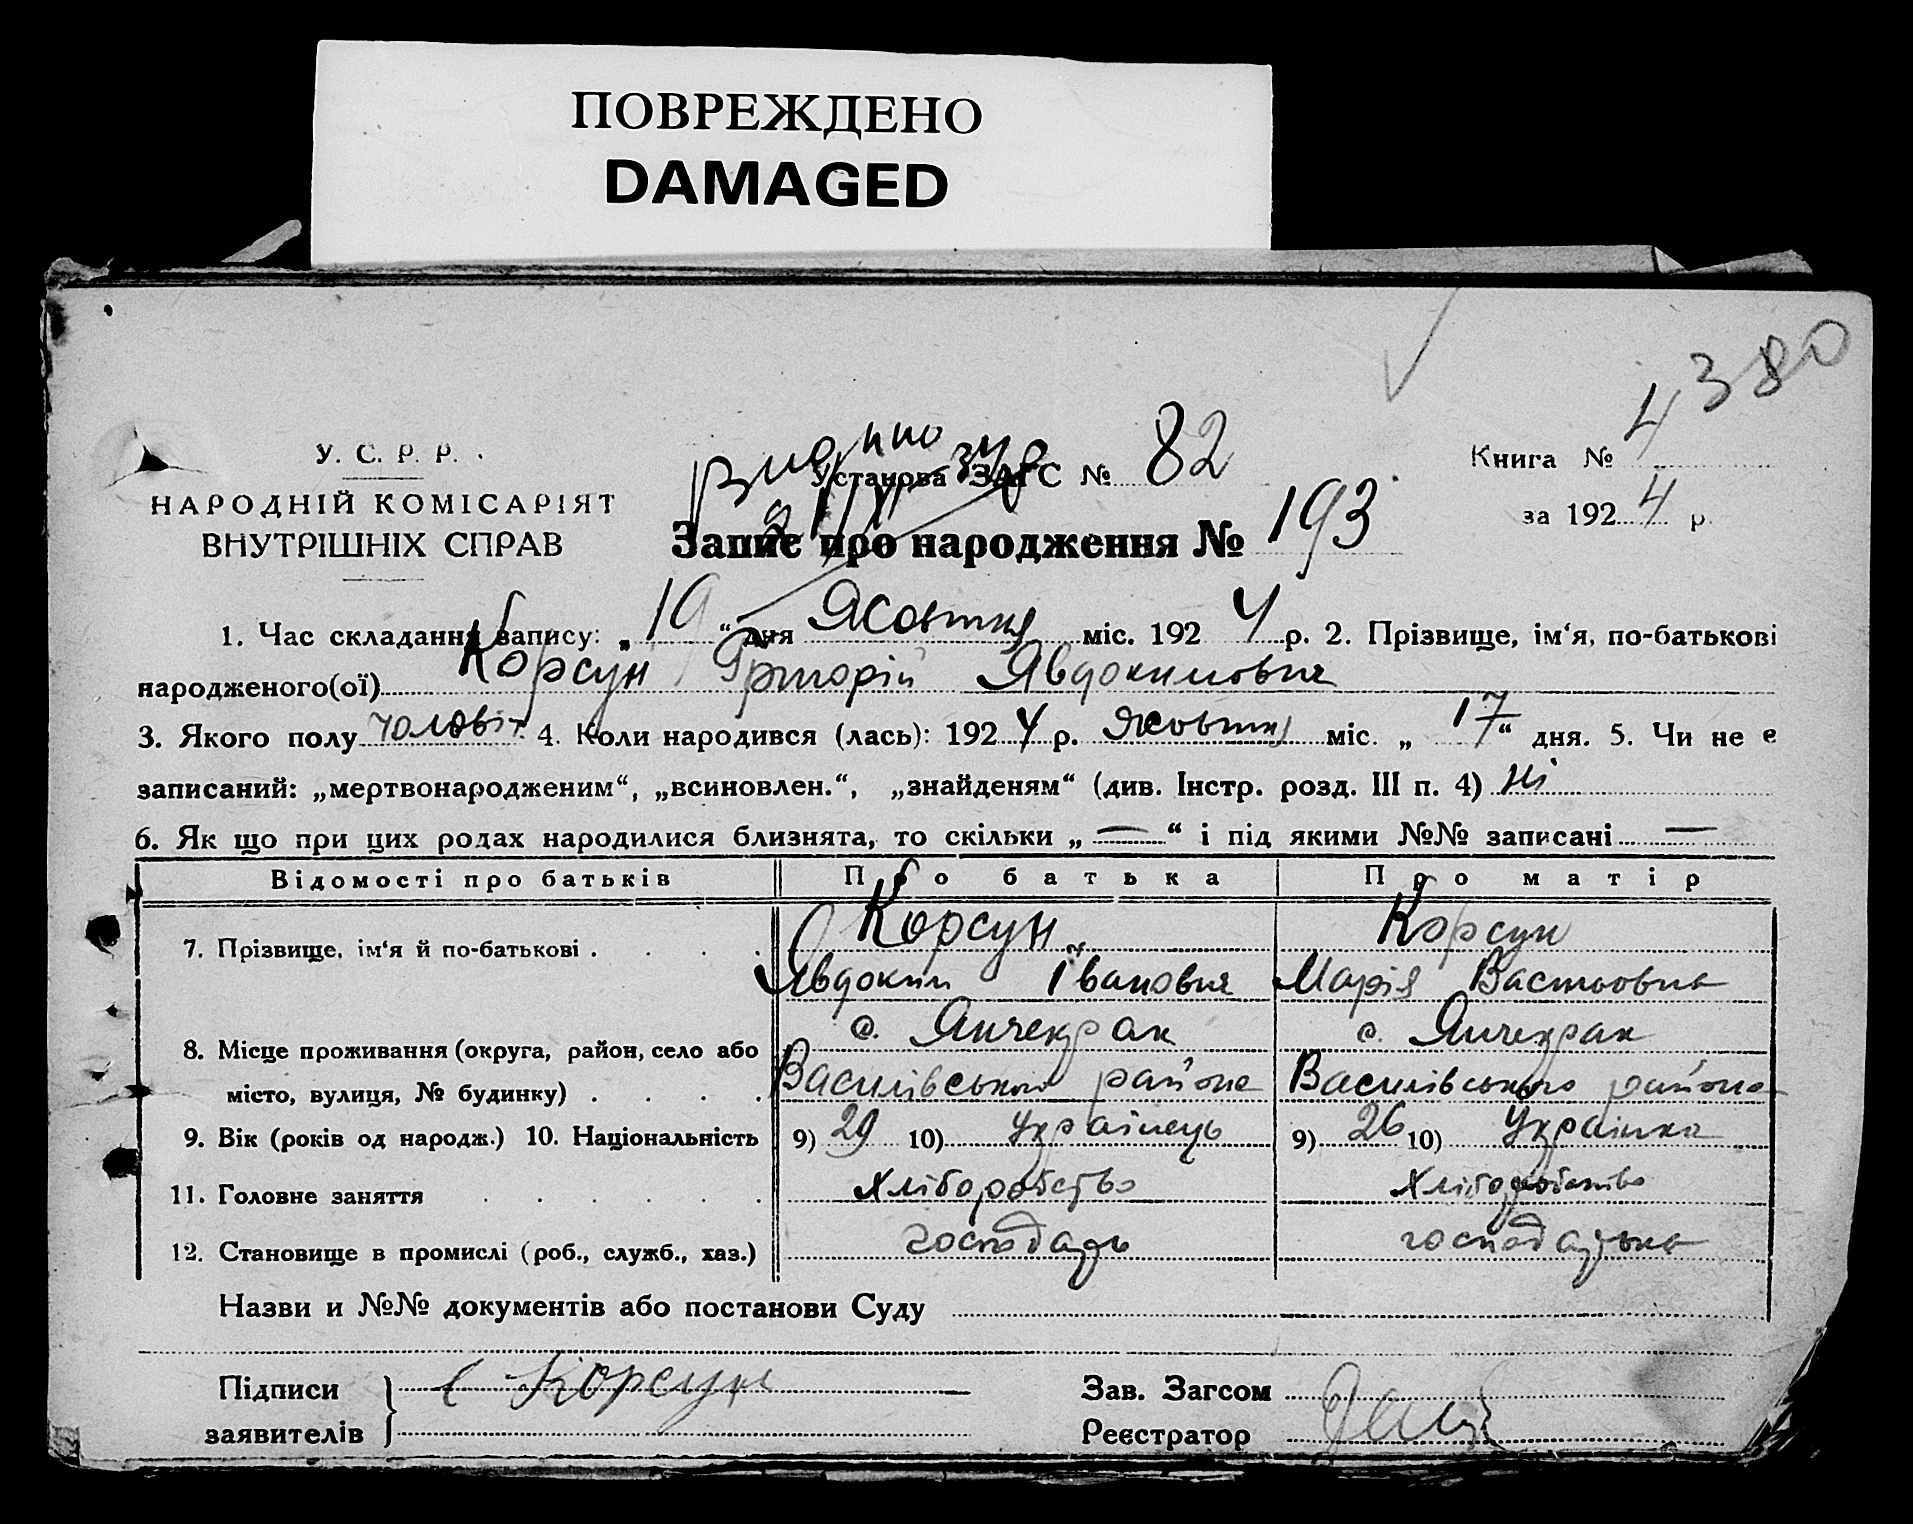 ПОВРЕЖДЕНО
DAMAGED
380
У. С. Р. Р.
НАРОДНІЙ КОМІСАРІЯТ
ВНУТРІШНІХ СПРАВ
Установа ЗАГС № 82
Книга № 4
за 1924 р.
Запис про народження № 193
1. Час складання запису: „19“ дня Жовтня міс. 1924 р. 2. Прізвище, ім‘я, по-батькові
народженого(ої) Корсун Григорій Явдокимович
3. Якого полу чоловіч. 4. Коли народився (лась): 1924 р. Жовтня міс. „17“ дня. 5. Чи не є
записаний: „мертвонародженим“, „всиновлен.“, „знайденям“ (див. Інстр. розд. III п. 4) ні
6. Як що при цих родах народилися близнята, то скільки „—“ і під якими №№ записані —
Відомості про батьків Про батька Про матір
7. Прізвище, ім‘я й по-батькові . . . . Корсун Корсун
Явдоким Іванович Марія Василовна
с. Янчекрак с. Янчекрак
8. Місце проживання (округа, район, село або
місто, вулиця, № будинку) . . . . Василівського района Василівського района
9. Вік (років од народж.) 10. Національність 9) 29 10) Українець 9) 26 10) Українка
11. Головне заняття . . . . . . Хліборобство Хліборобство
12. Становище в промислі (роб., служб., хаз.) господарь господарька
Назви и №№ документів або постанови Суду
Підписи Корсун Зав. Загсом
заявителів Реєстратор